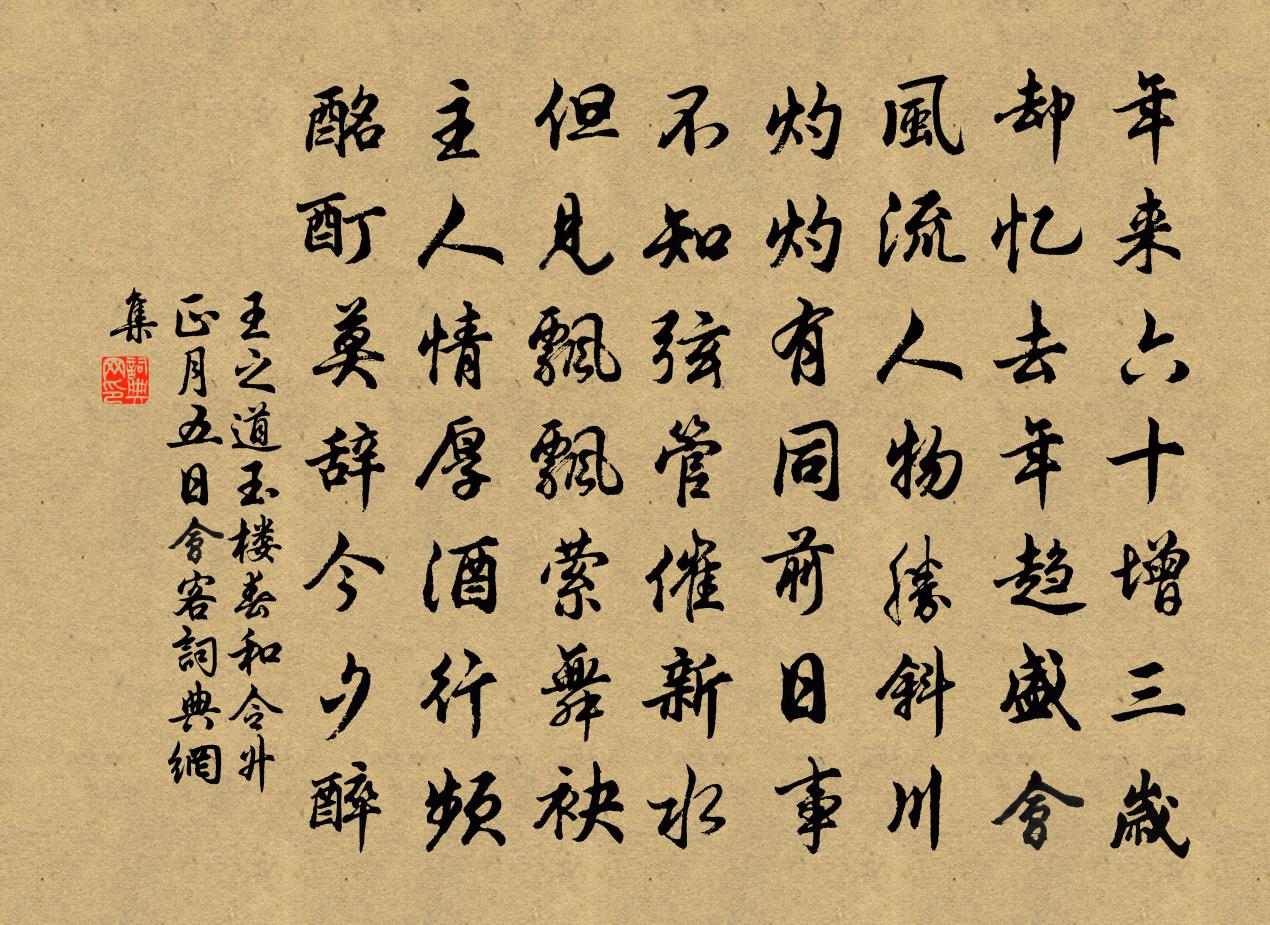 年来六十增三歲
却忆去年趋盛會
風流人物勝斜川
灼灼有同前日事
不知弦管催新水
但見飄飄萦舞袂
主人情厚酒行频
酩酊莫辞今夕醉
王之道玉楼春和令升
正月五日會客詞典網
集
詞典
网印